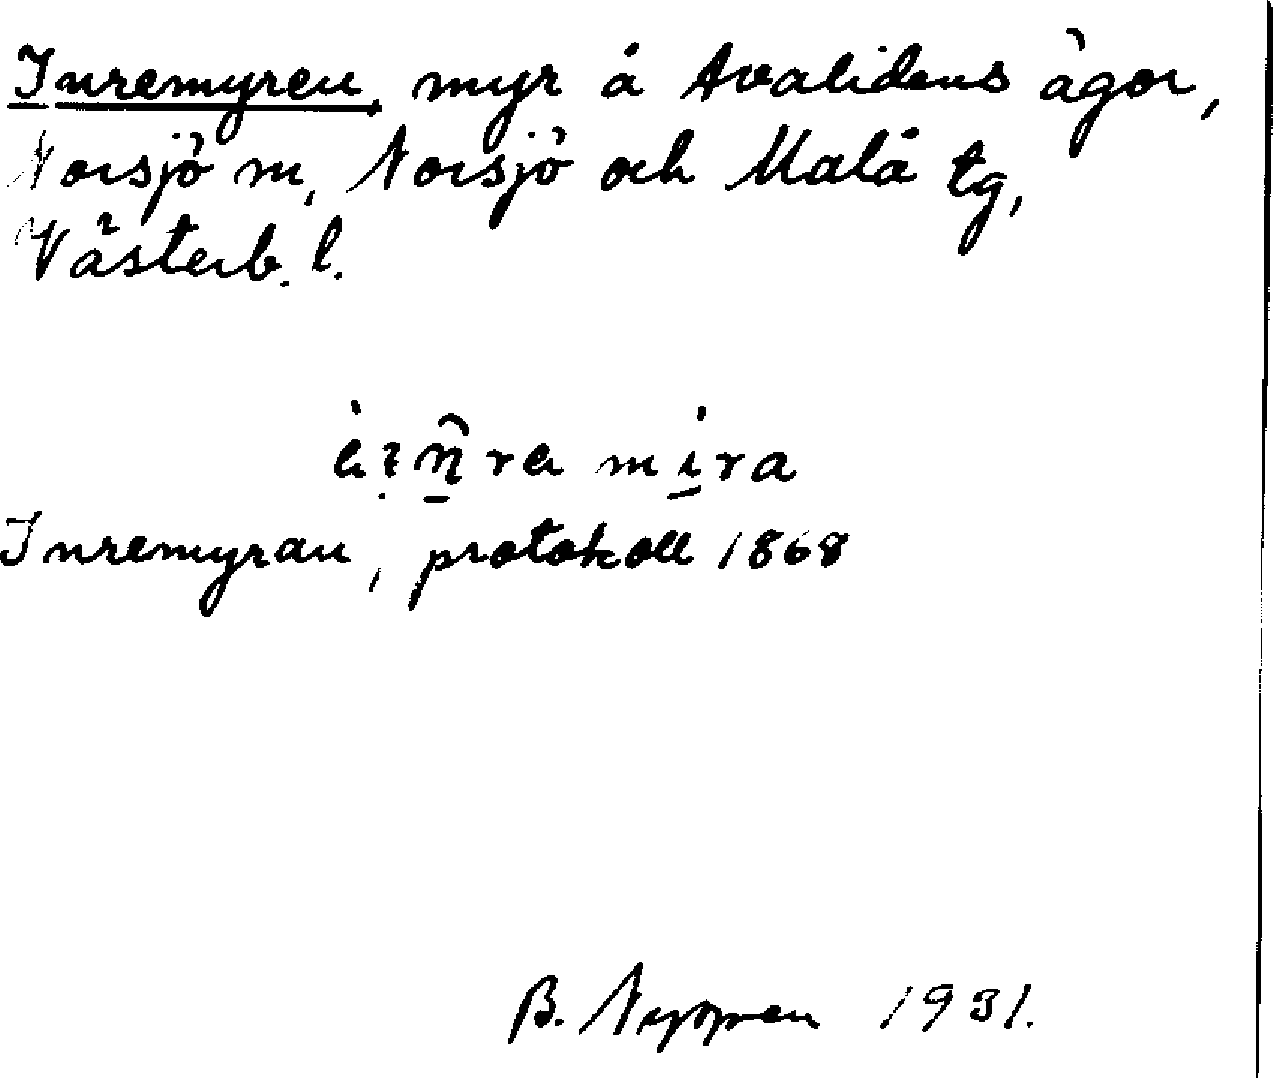 Inremyren, myr å Avalidens ägor,
Norsjö m, Norsjö och Malå tg,
Västerb. l.
mira
Inremyran, protokoll 1868
B. 1931.